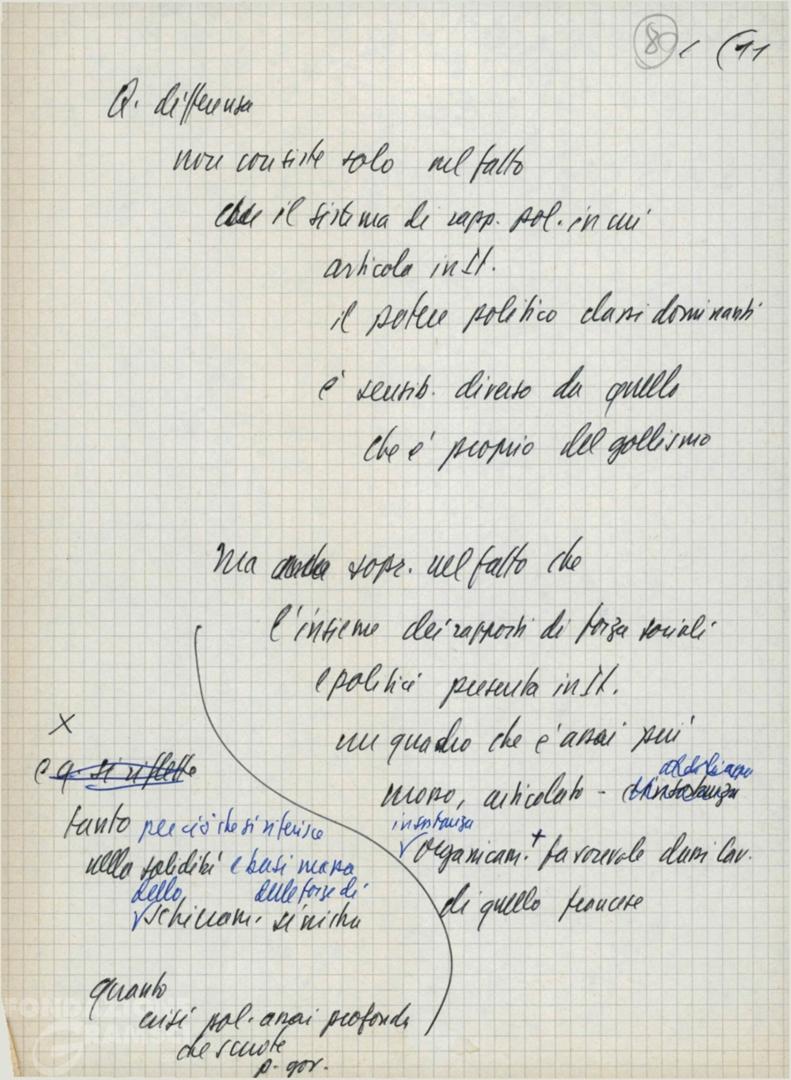 80 / (11
Q. differenza
non consiste solo nel fatto
che il sistema di rapp. pol. in cui
articola in It.
il potere politico classi dominanti
è sensib. diverso da quello
che è proprio del gollismo
Ma anche sopr. nel fatto che
l'insieme dei rapporti di forza sociali
e politici presenta in It.
un quadro che è assai più
mosso, articolato -
in sostanza
organicam. + favorevole classi lav.
di quello francese
X
e q. si riflette
tanto per ciò che si riferisce
nella solidità e basi massa
dello delle forze di
schieram. sinistra
quanto
crisi pol. assai profonda
che scuote
p. gov.
FONDAZIONE